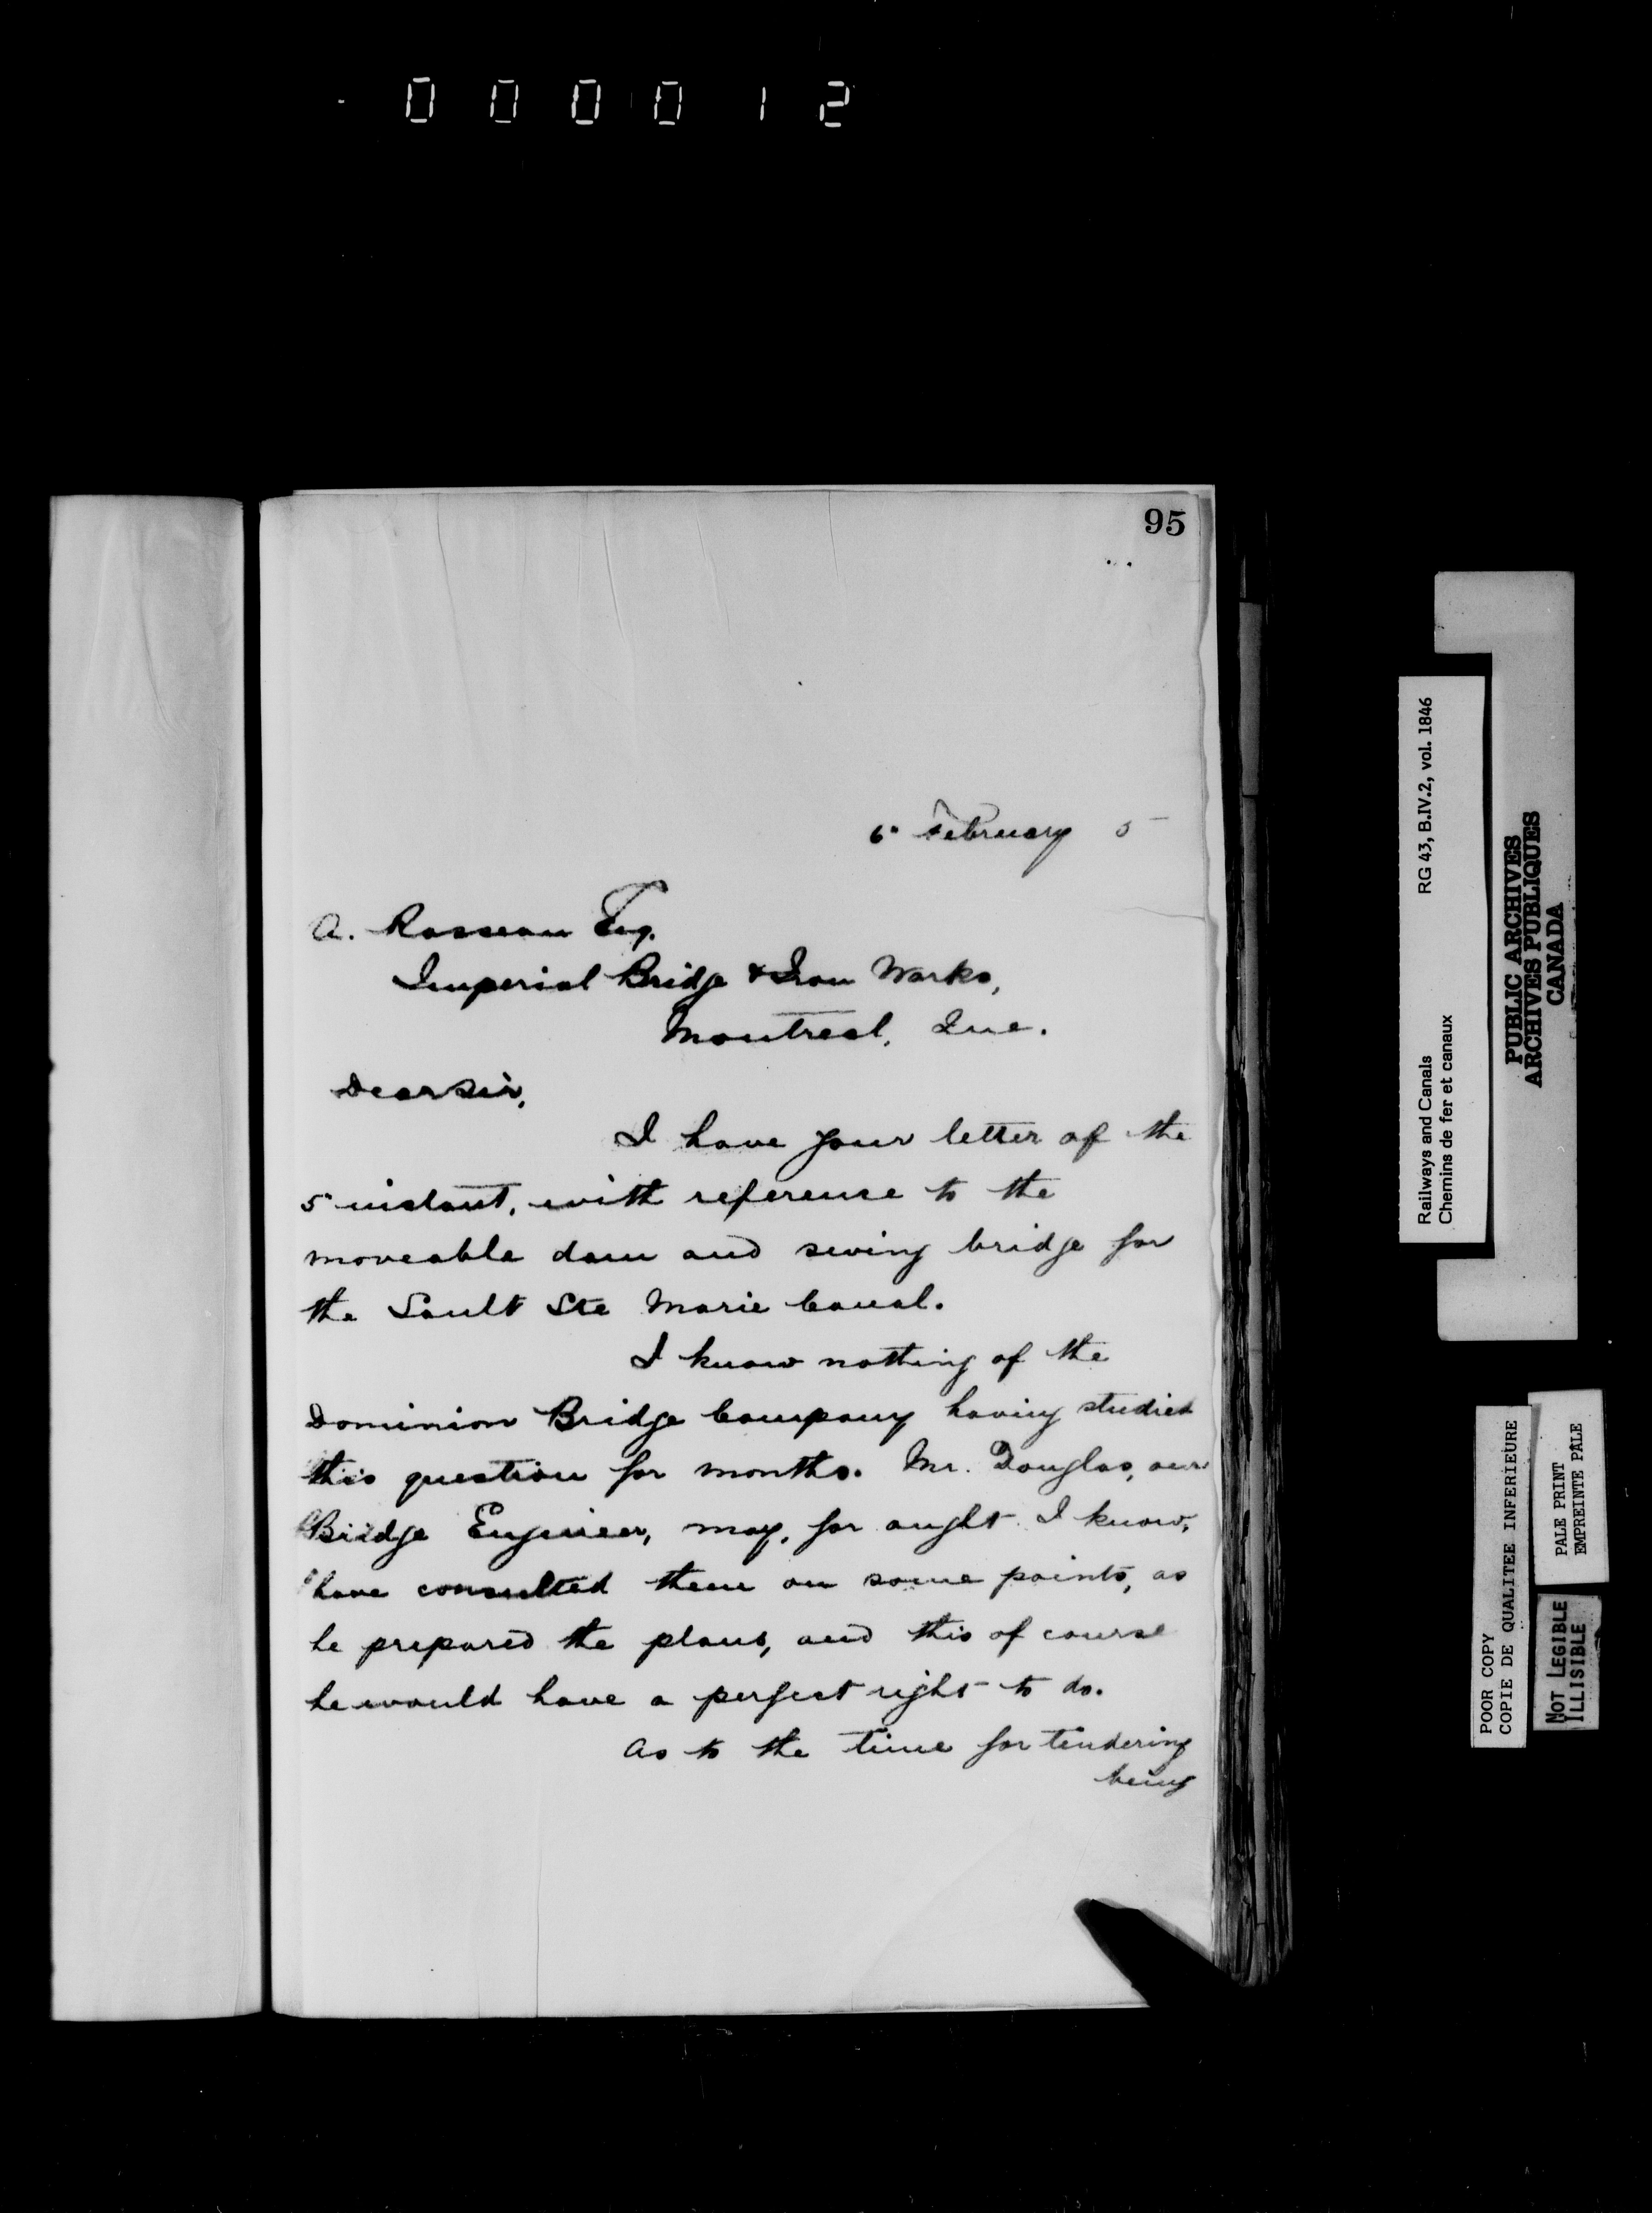 000012
95
6" February 5
A. Rosseau Esq.
Imperial Bridge & Iron Works,
Montreal, Que.
Dear Sir,
I have your letter of the
5" instant, with reference to the
moveable dam and swing bridge for
the Sault Ste Marie Canal.
I know nothing of the
Dominion Bridge Company having studied
this question for months. Mr. Douglas, our
Bridge Engineer, may, for aught I know,
have consulted them on some points, as
he prepared the plans, and this of course
he would have a perfect right to do.
As to the time for tendering
being
Railways and Canals RG 43, B.IV.2, vol. 1846
Chemins de fer et canaux
PUBLIC ARCHIVES
ARCHIVES PUBLIQUES
CANADA
POOR COPY
COPIE DE QUALITEE INFERIEURE
PALE PRINT
EMPREINTE PALE
NOT LEGIBLE
ILLISIBLE